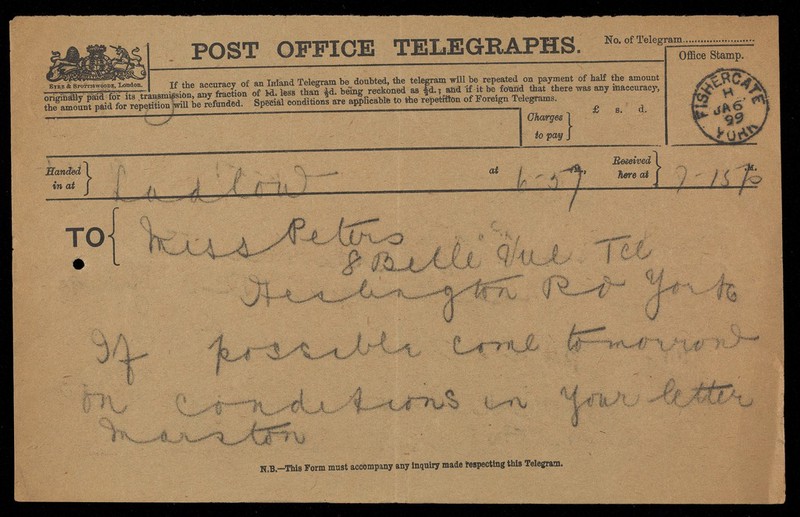 POST OFFICE TELEGRAPHS.
No. of Telegram
Office Stamp.
EYRE & SPOTTISWOODE, London.
If the accuracy of an Inland Telegram be doubted, the telegram will be repeated on payment of half the amount
originally paid for its transmission, any fraction of 1d. less than ½d. being reckoned as ½d.; and if it be found that there was any inaccuracy,
the amount paid for repetition will be refunded. Special conditions are applicable to the repetition of Foreign Telegrams.
FISHERGATE
H
JA 6
99
YORK
Charges
to pay
£ s. d.
Handed
in at
Ludlow
at
Received
here at
7-15p
TO
Miss Peters
8 Belle Vue Tce
Heslington Rd York
If possible come tomorrow
on conditions in your letter
Marston
N.B.—This Form must accompany any inquiry made respecting this Telegram.